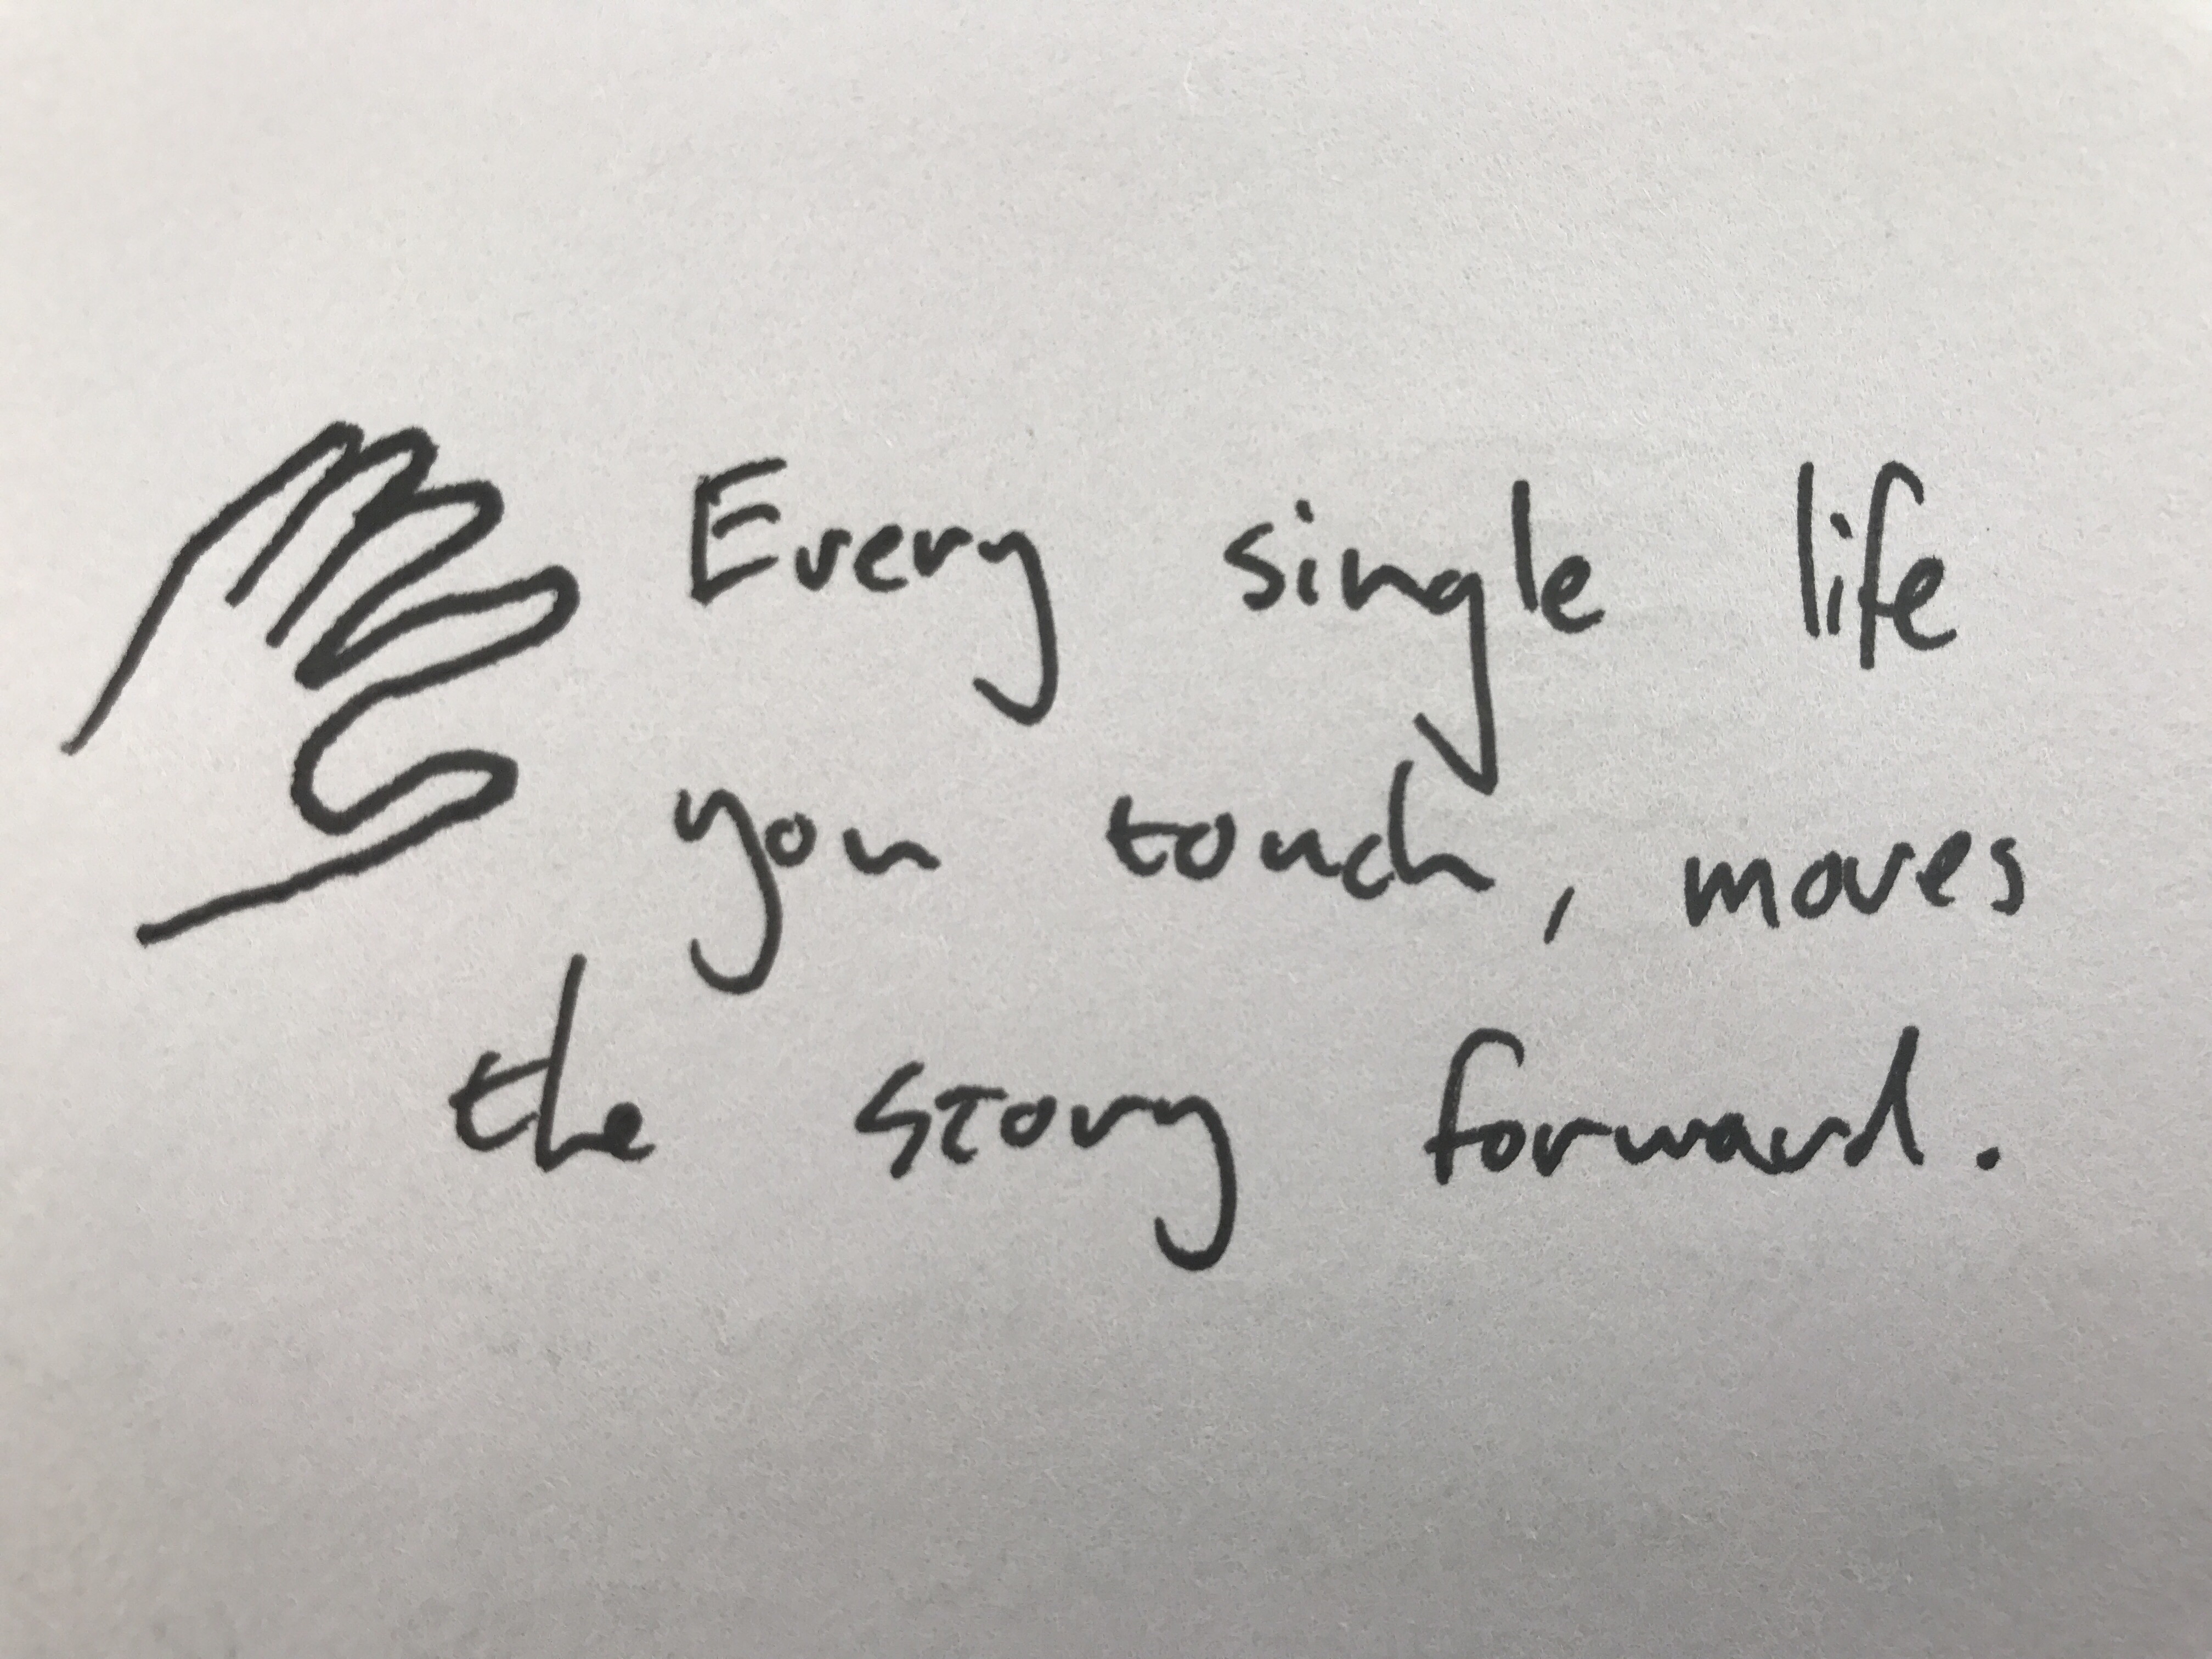 Every single life
you touch, moves
the story forward.